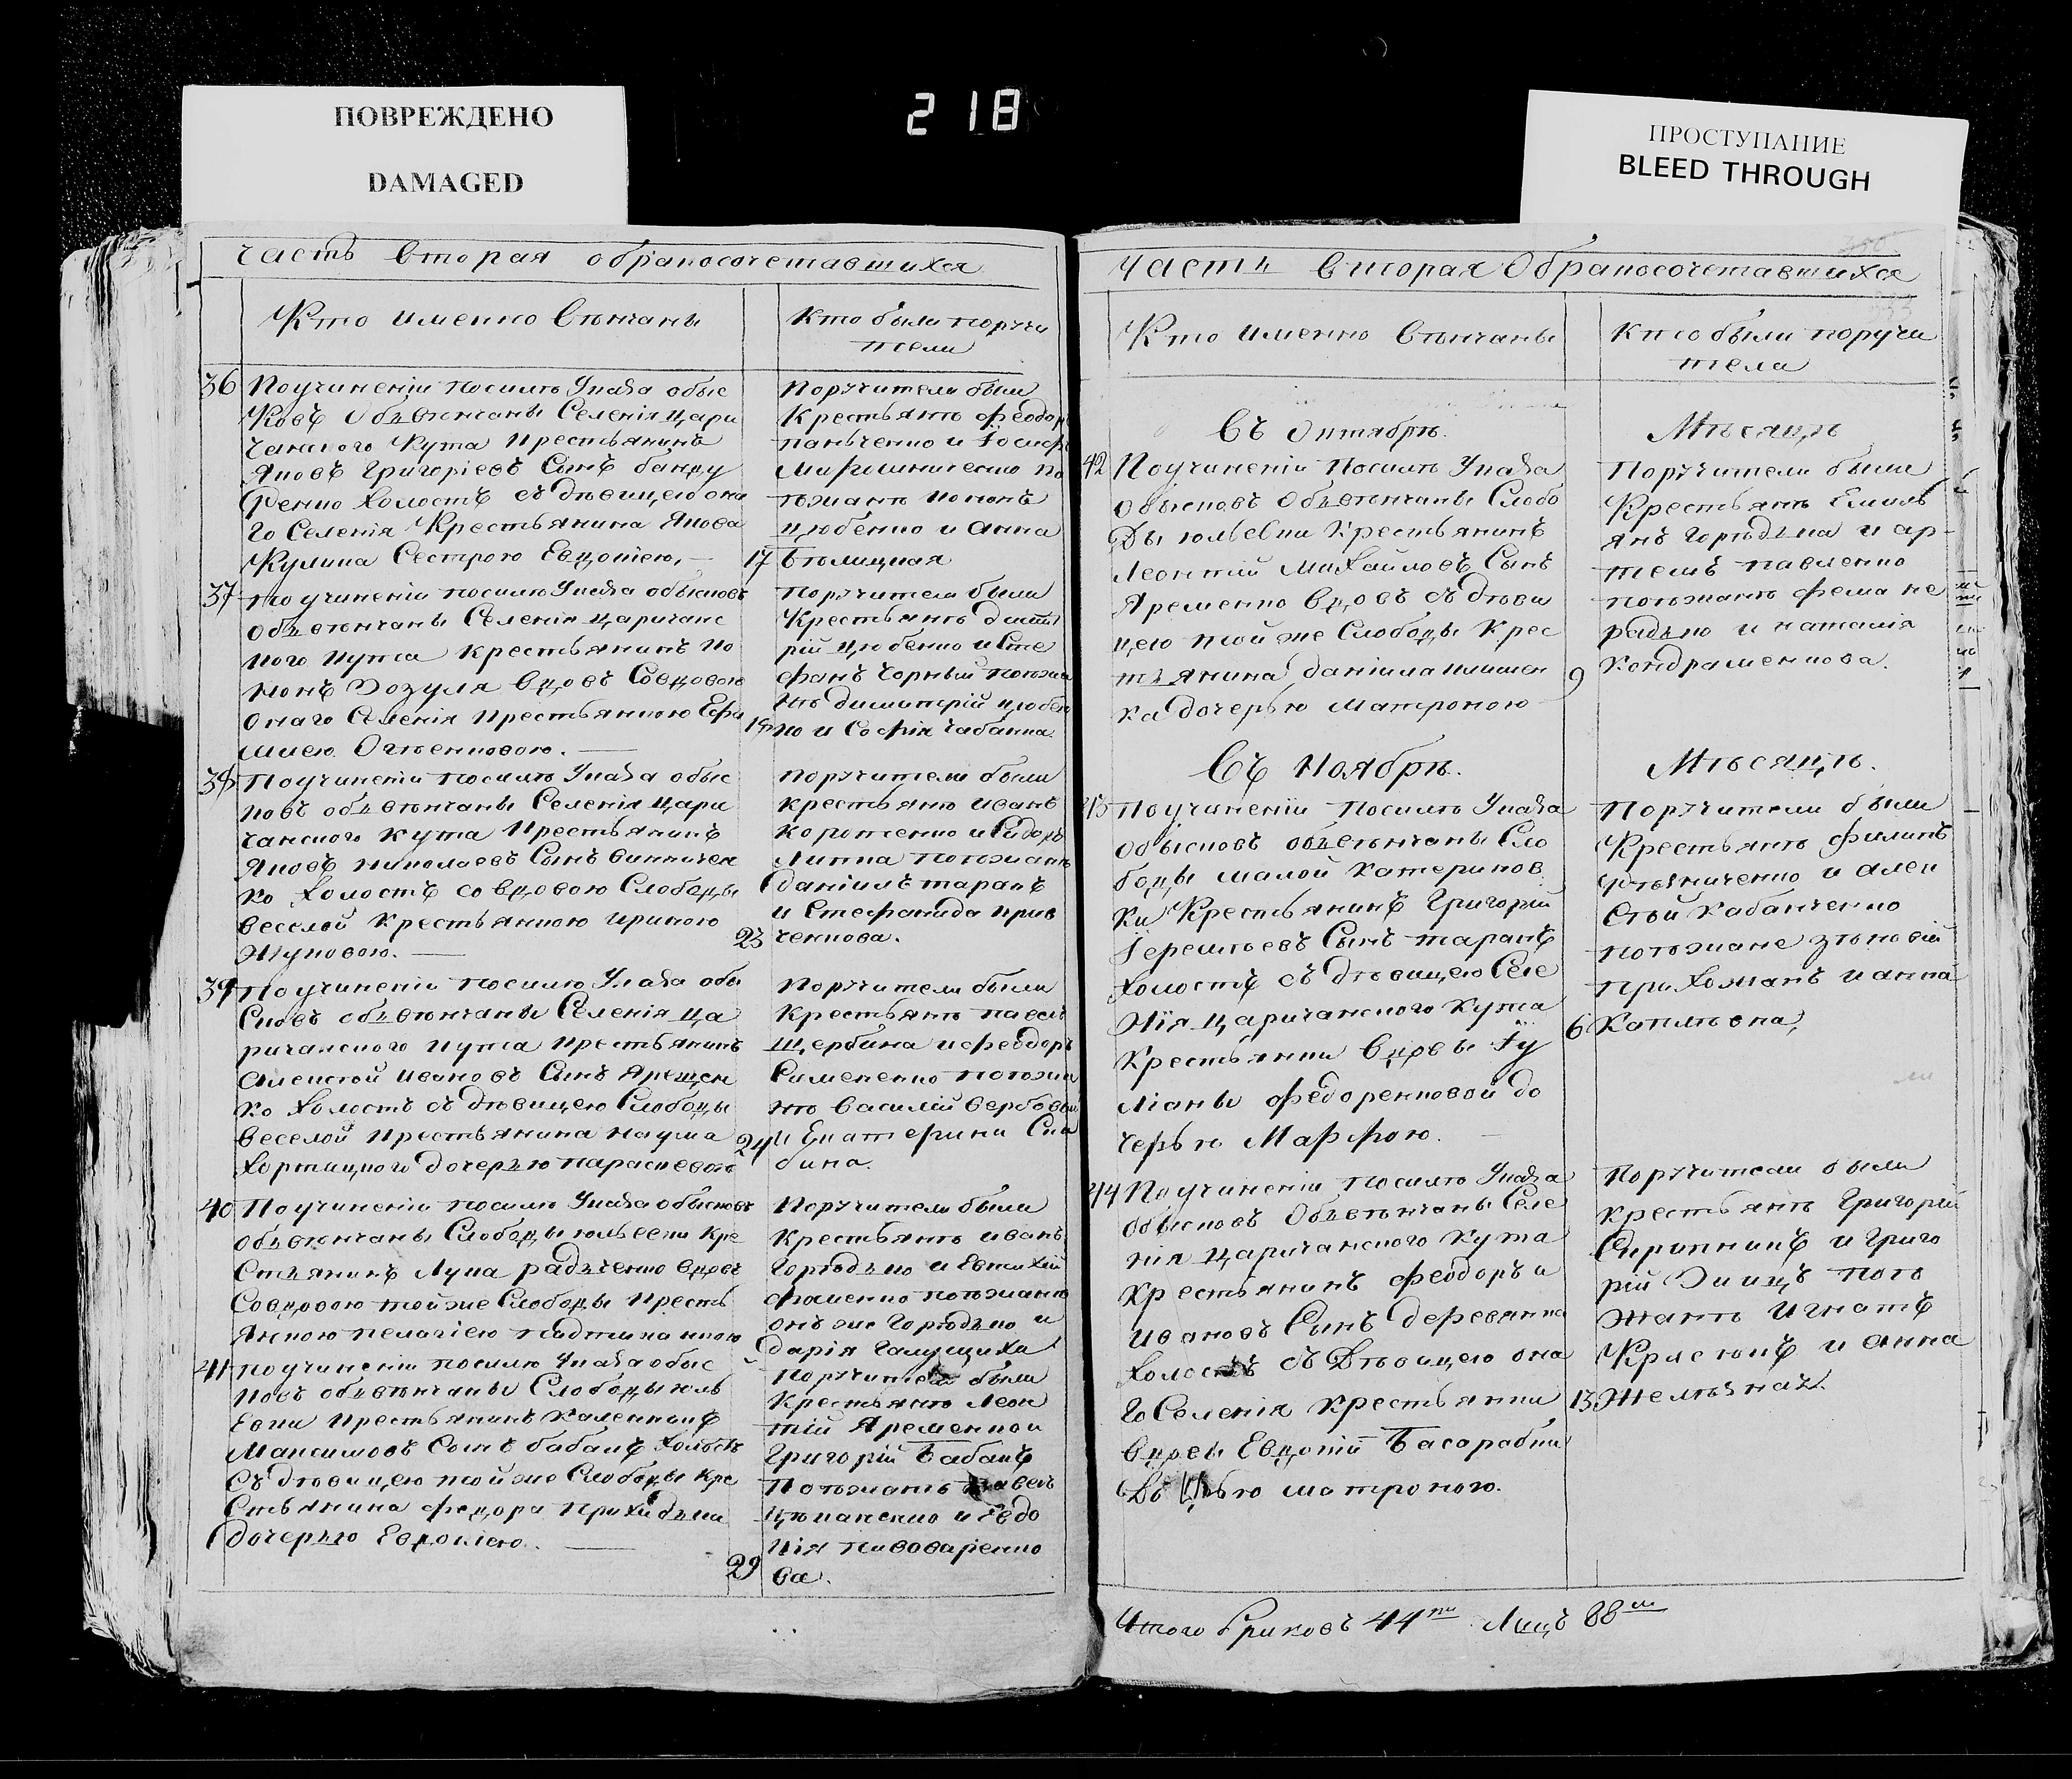 218
ПОВРЕЖДЕНО
DAMAGED
ПРОСТУПАНИЕ
BLEED THROUGH
Часть вторая обракосочетавшихся
Кто именно вѣнчаны
Кто были поручи
тели
36 Поучиненіи посилѣ Указа обыс
ковъ Обвѣнчаны Селенія Цари
чанского Кута Крестьянинъ
Яковъ Григоріевъ Сынъ банду
ренко холостъ съ дѣвицею она
го Селенія Крестьянина Якова
Кулика Сестрою Евдокіею.
Поручители были
Крестьянѣ Феодоръ
панченко и Іосифъ
Мирошниченко по
ѣзжанѣ Кононъ
Цюбенко и Анна
17 Бѣлицкая
37 Поучиненіи посилѣ Указа обысковъ
обвѣнчаны Селенія Царичанс
кого кута крестьянинъ Ко
нонъ Зозуля вдовъ Совдовою
Онаго Селенія крестьянкою Ефи
міею Огѣенковою.
Поручители были
Крестьянѣ Дмит
рій Цюбенко и Сте
фанъ Чорный поѣзжа
нѣ Димитрій Цюбен
19 ко и Софія Чабанка
38 Поучиненіи посилѣ Указа обыс
ковъ обвѣнчаны Селенія Цари
чанского кута Крестьянинъ
Яковъ Николаевъ Сынъ Винничен
ко холостъ со вдовою Слободы
веселой Крестьянкою Ириною
Жуковою.
поручители были
крестьянѣ Иванъ
Коротенко и Сидоръ
Липка поѣзжанѣ
Даніилъ таранъ
и Стефанида Крив
23 ченкова.
39 Поучиненіи посилѣ Указа обы
сковъ обвѣнчаны Селенія Ца
ричанского кута крестьянинъ
Алексѣй Ивановъ Сынъ Ярещен
ко холостъ съ дѣвицею Слободы
веселой крестьянина Наума
Хортицкого дочерью параскевою
Поручители были
Крестьянѣ павелъ
Щербина и Феодоръ
Симененко поѣзжа
нѣ василій вербовый
24 и Екатерина Ска
бина.
40 Поучиненіи посилѣ Указа обысковъ
обвѣнчаны Слободы юльевки кре
стьянинъ Лука радченко вдовъ
Совдовою тойже Слободы кресть
янкою пелагіею
Поручители были
крестьянѣ иванъ
Горобько и Евтихій
Фоменко поѣзжанѣ
онъ же Горобько и
Дарія Галущиха
41 Поучиненіи посилѣ Указа обыс
ковъ обвѣнчаны Слободы юль
евки крестьянинъ Каленикъ
Максимовъ Сынъ бабакъ холостъ
съ дѣвицею тойже Слободы кре
стьянина Федора Прихидька
дочерью Евдокіею.
Поручители были
Крестьянѣ Леон
тій Яременко и
Григорій Бабакъ
Поѣзжанѣ павелъ
и Евдо
кія пивоваренко
29 ва.
Часть вторая Обракосочетавшихся
Кто именно вѣнчаны
Кто были поручи
тела
Въ Октябрѣ.
Мѣсяцѣ
42 Поучиненіи Посилѣ Указа
обысковъ Обвѣнчаны Слобо
ды юльевки Крестьянинъ
Леонтій Михайловъ Сынъ
Яременко вдовъ съ дѣви
цею той же Слободы Крес
тьянина Даніила
ка дочерью Матроною
Поручители были
Крестьянѣ Емиль
янъ Горобька и ар-
темъ павленко
поѣзжанѣ фома не
радько и наталія
9 кондраменкова.
Въ Ноябрѣ.
Мѣсяцѣ.
43 Поучиненіи посилѣ Указа
обысковъ обвѣнчаны Сло
боды малой Катеринов
ки Крестьянинъ Григорій
Іереміевъ Сынъ таранъ
холостъ съ дѣвицею Селе
нія Царичанского Кута
крестьянки вдовы Іу
ліаны Федоренковой до
черью Марфою.
Поручители были
Крестьянѣ филипъ
Рѣзниченко и Алек
сѣй кабанченко
поѣзжане зѣновій
прихоманъ и анна
6
44 Поучиненіи посилѣ Указа
обысковъ Обвѣнчаны Селе
нія Царичанского Кута
крестьянинъ Феодоръ
Ивановъ Сынъ деревянка
холостъ съ дѣвицею она
го Селенія крестьянки
вдовы Евдокіи Басарабки
дочерью матроною.
Поручители были
крестьянѣ Григорій
Скрипникъ и Григо
рій Заицъ поѣ
жанѣ Игнатъ
и анна
13
Итого браковъ 44 Лицъ 88